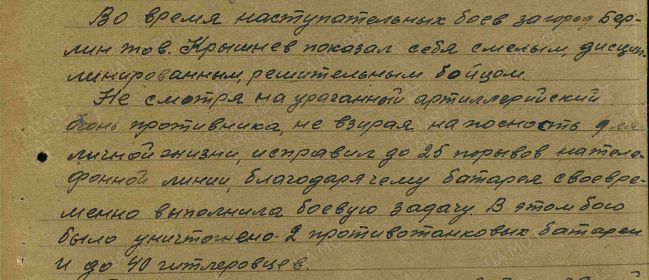 Во время наступательных боев за город Бер-
лин тов. Крышнев показал себя смелым, дисцип-
линированным, решительным бойцом.
Не смотря на ураганный артиллерийский
огонь противника, не взирая на посность для
личной жизни, исправил до 25 порывов на теле-
фонной линии, благодаря чему батарея своевре-
менно выполнила боевую задачу. В этом бою
было уничтожено 2 противотанковых батареи
и до 40 гитлеровцев.